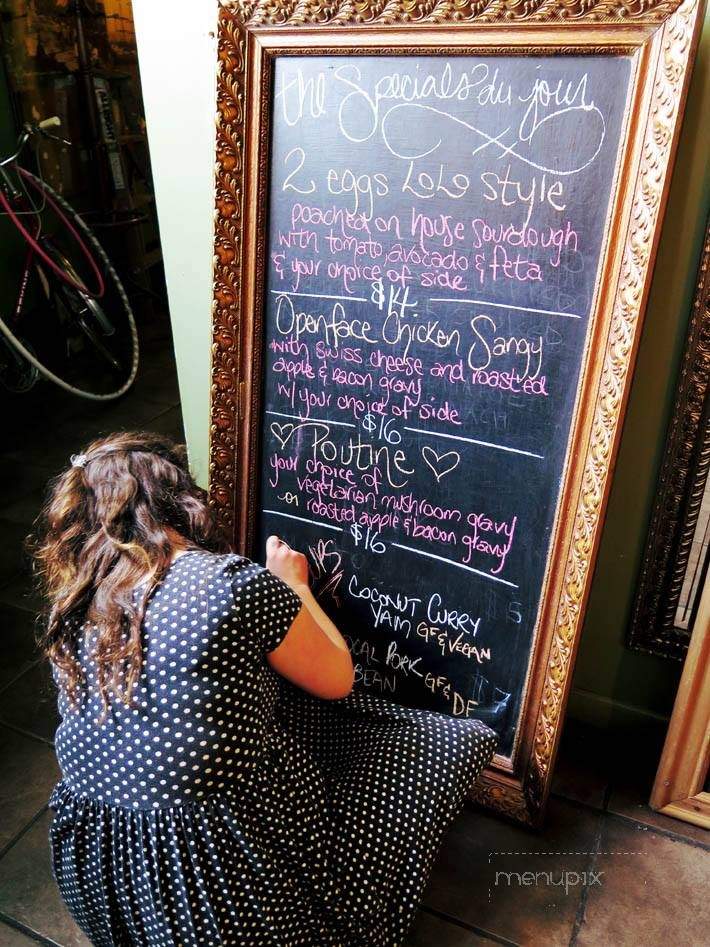 the Specials du jour
2 eggs LoLo style
poached on house sourdough
with tomato, avocado & feta
& your choice of side
$14.
Openface Chicken Sangy
with swiss cheese and roasted
apple & bacon gravy
w/ your choice of side
$16
Poutine
your choice of
vegetarian mushroom gravy
or roasted apple & bacon gravy
$16
COCONUT CURRY
YAM GF & VEGAN
LOCAL PORK
BEAN GF & DF
menupix